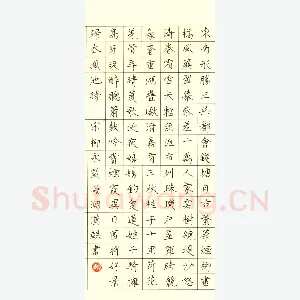 東南形勝三吳都會錢塘自古繁華煙柳畫
橋風簾翠幕參差十萬人家雲樹繞堤沙怒
濤卷霜雪天塹無涯市列珠璣戶盈羅綺競
豪奢重湖疊巘清嘉有三秋桂子十里荷花
羌管弄晴菱歌泛夜嬉嬉釣叟蓮娃千騎擁
高牙乘醉聽簫鼓吟賞煙霞異日圖將好景
歸去鳳池誇 宋柳永望海潮 書